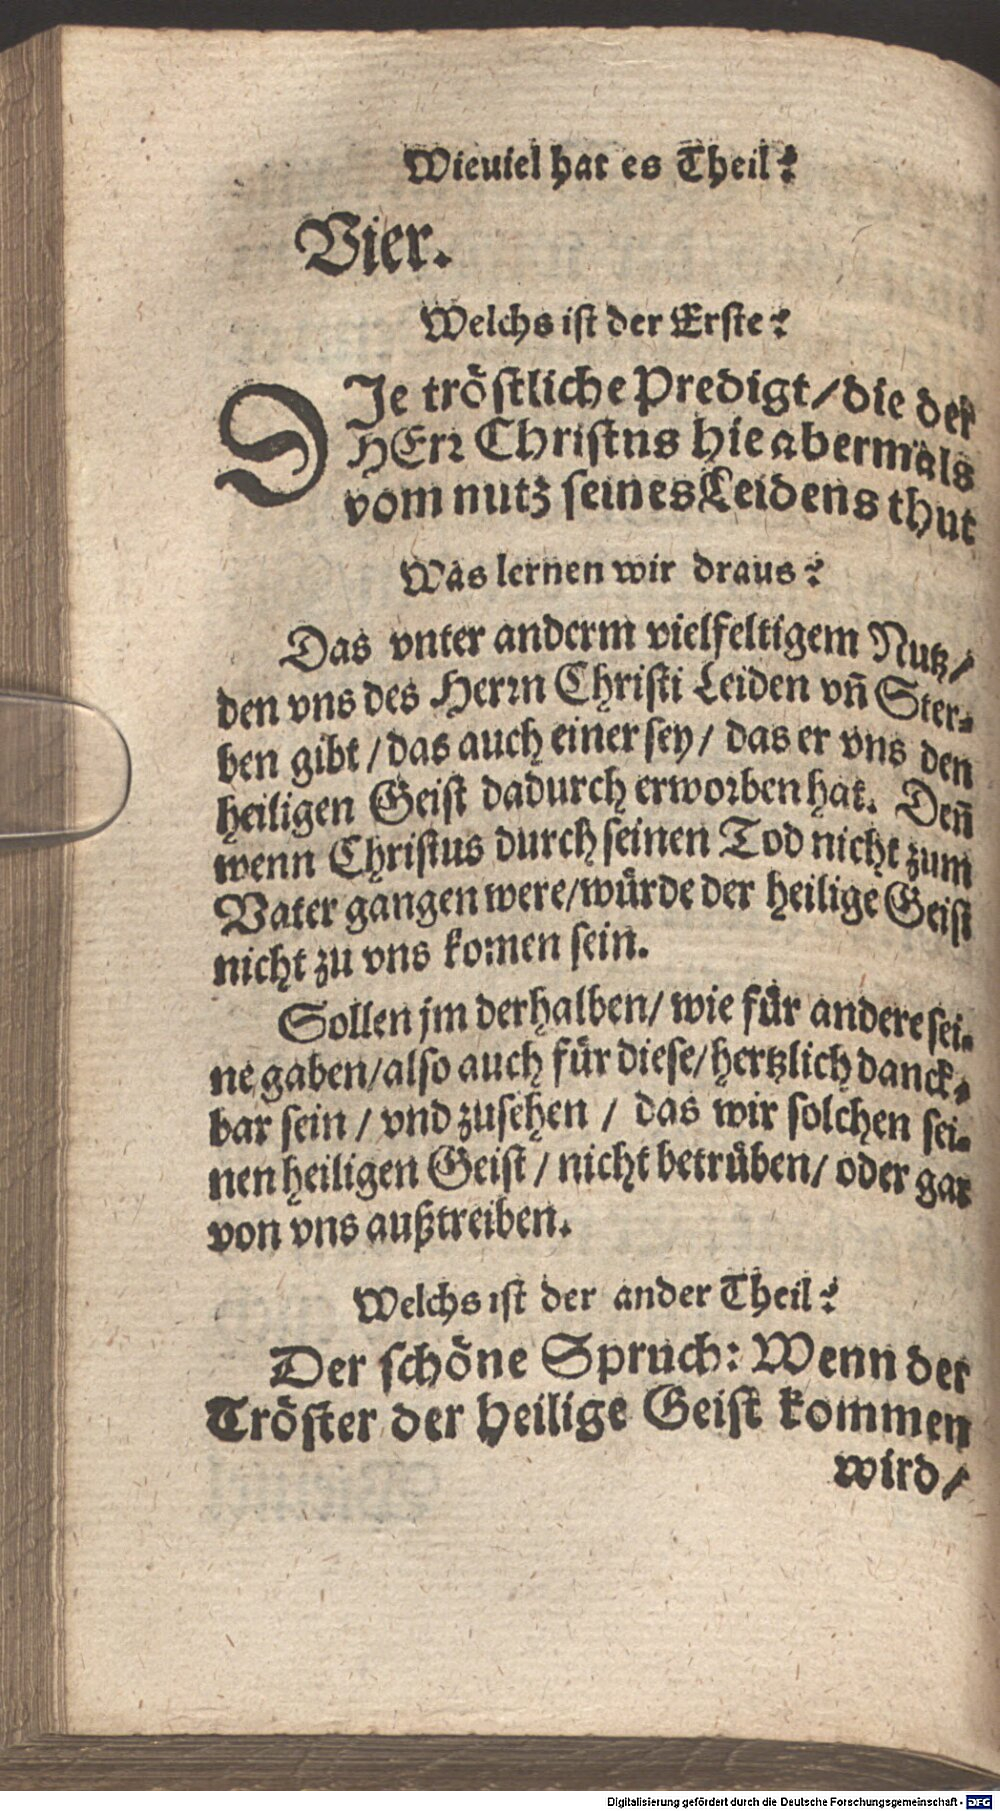 Wieuiel hat es Theil?
Vier.
Welchs ist der Erste?
DIe tröstliche Predigt/die der
HErr Christus hie abermals
vom nutz seines Leidens thut
Was lernen wir draus?
Das vnter anderm vielfeltigem Nutz/
den vns des Herrn Christi Leiden vn̄ Ster-
ben gibt/das auch einer sey/ das er vns den
heiligen Geist dadurch erworben hat. Den̄
wenn Christus durch seinen Tod nicht zum
Vater gangen were/würde der heilige Geist
nicht zu vns komen sein.
Sollen jm derhalben/ wie für andere sei-
ne gaben/also auch für diese/hertzlich danck-
bar sein/ vnd zusehen/ das wir solchen sei-
nen heiligen Geist/ nicht betrüben/ oder gar
von vns außtreiben.
Welchs ist der ander Theil?
Der schöne Spruch: Wenn der
Tröster der heilige Geist kommen
wird/
Digitalisierung gefördert durch die Deutsche Forschungsgemeinschaft - DFG